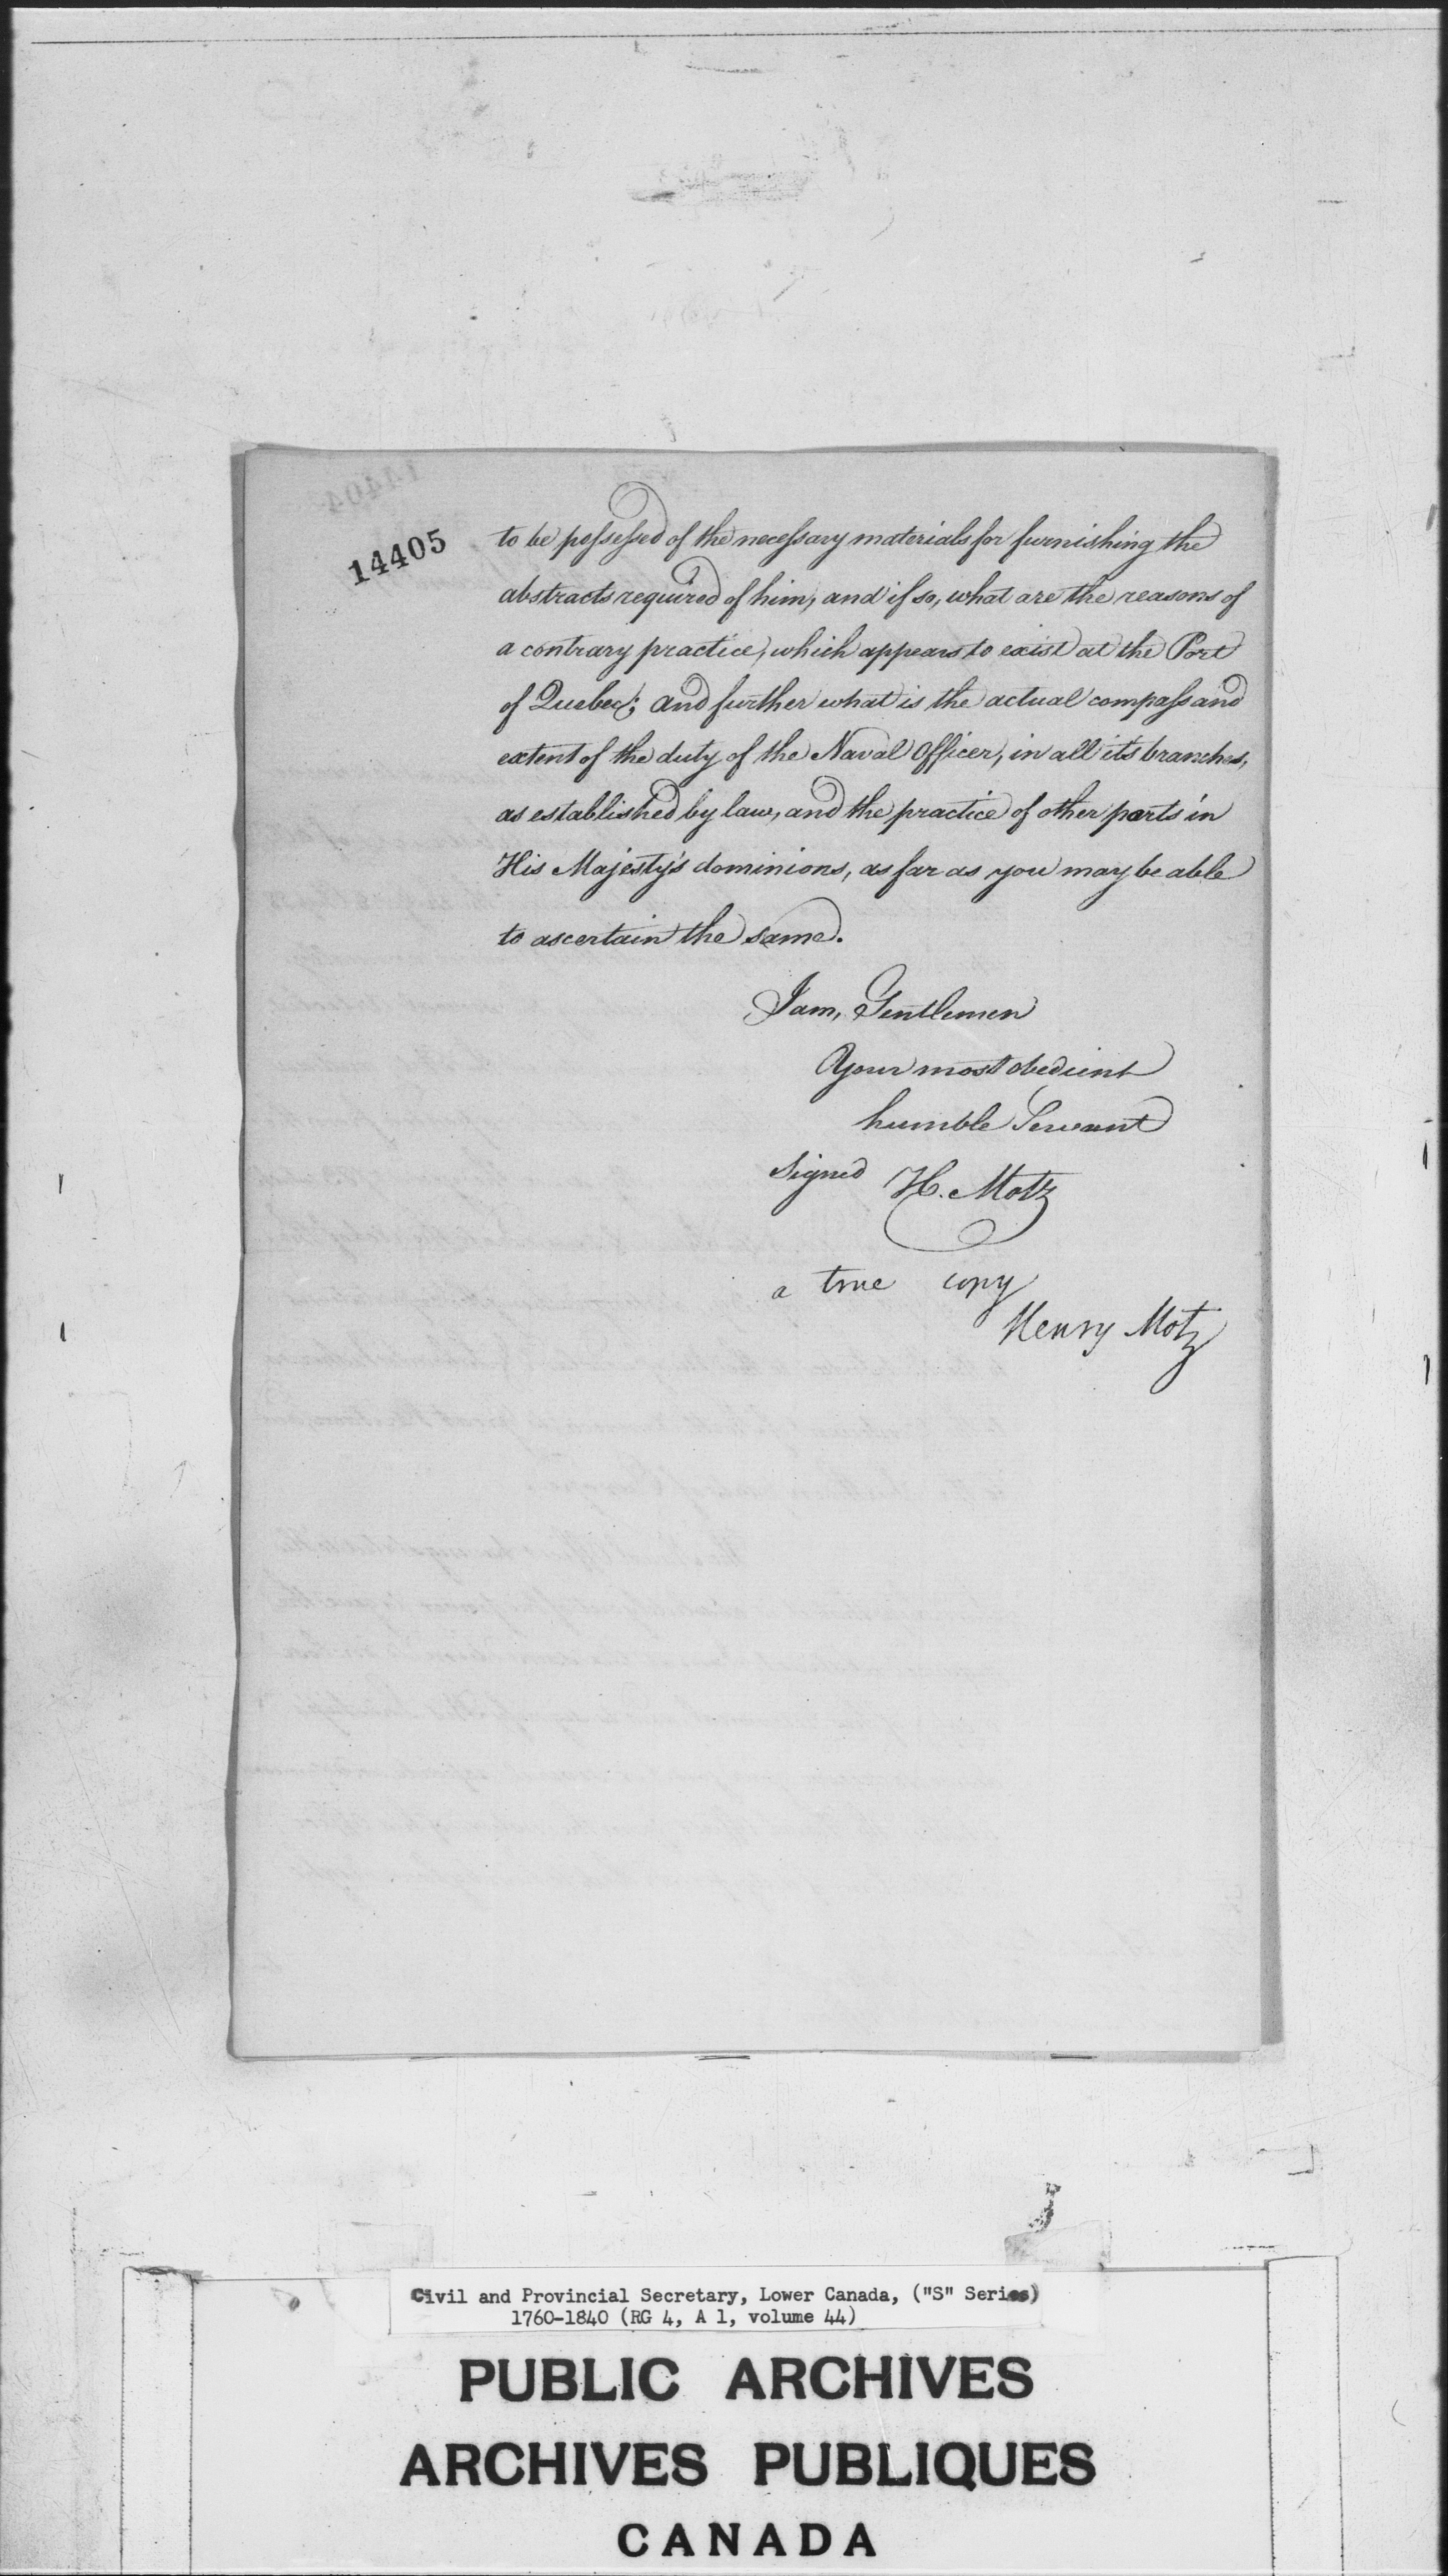 14405
to be possessed of the necessary materials for furnishing the
abstracts required of him, and if so, what are the reasons of
a contrary practice, which appears to exist at the Port
of Quebec; and further what is the actual compass and
extent of the duty of the Naval Officer, in all it's branches,
as established by law, and the practice of other ports in
His Majesty's dominions, as far as you may be able
to ascertain the same.
I am, Gentlemen
Your most obedient
humble Servant
Signed H. Motz
a true copy
Henry Motz
Civil and Provincial Secretary, Lower Canada, ("S" Series)
1760-1840 (RG 4, A 1, volume 44)
PUBLIC ARCHIVES
ARCHIVES PUBLIQUES
CANADA